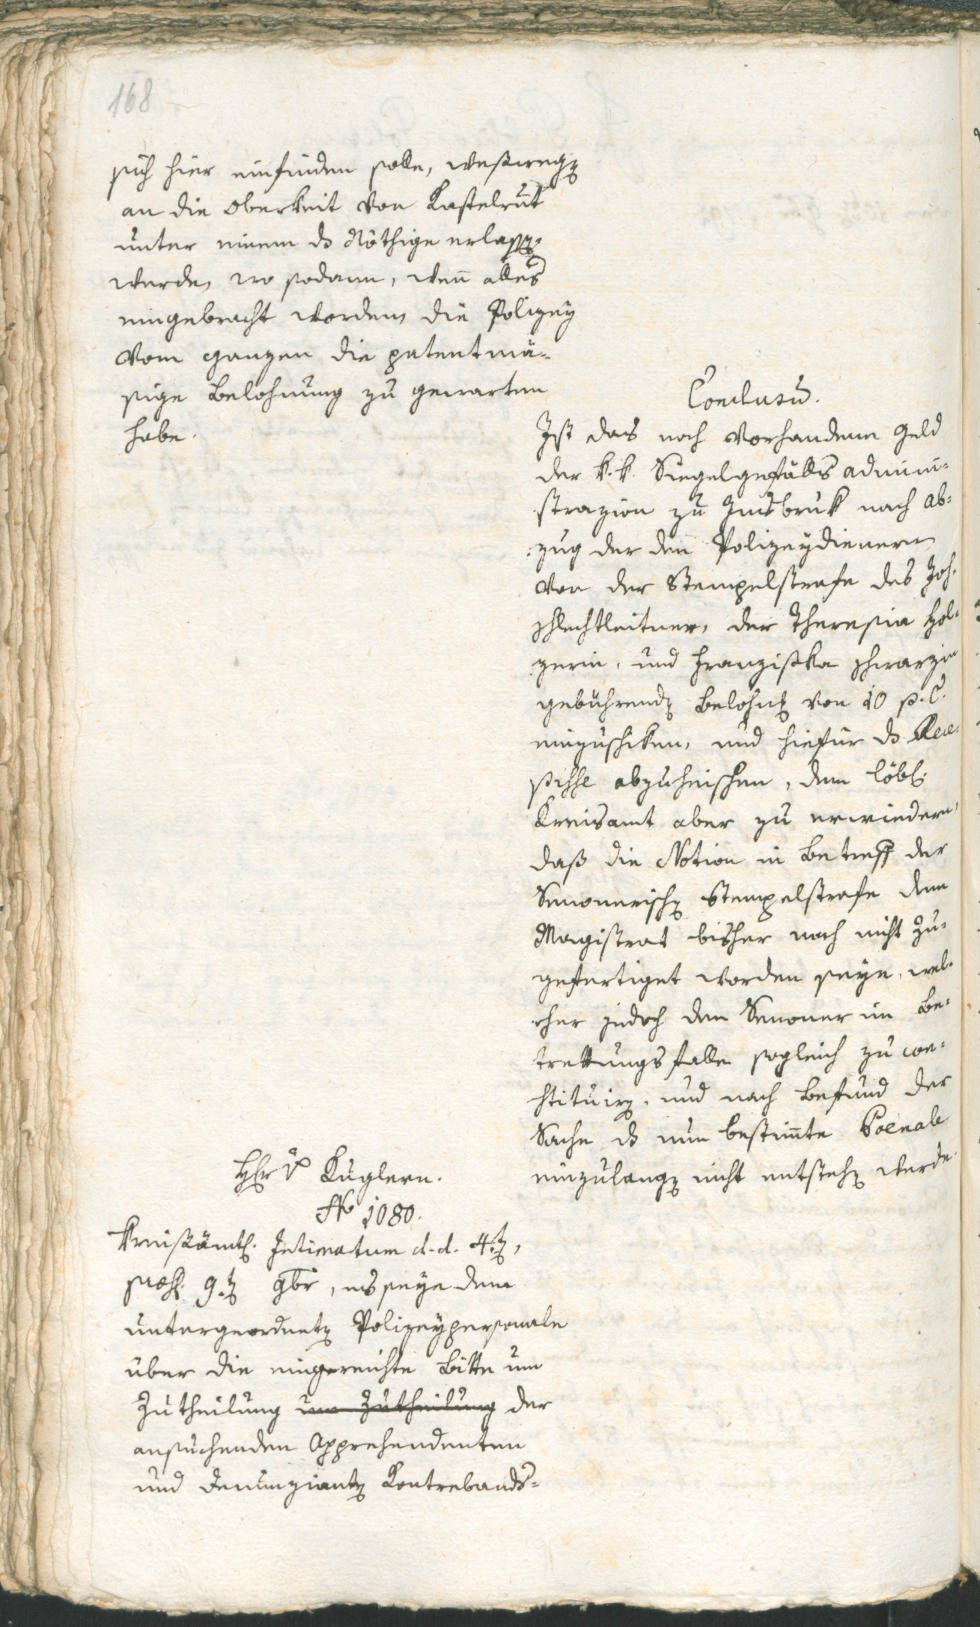 168
sich hier einfinden solle, weßwegen
an die Oberkeit von Kastelrut
unter einem ds Nöthige erlassen
werde, wo sodann, wenn alles
eingebracht worden, die Polizey
vom ganzen die patentmä-
sige Belohnung zu gewarten
habe.
Conclusum.
Ist das noch vorhandene Geld
der k. k. Siegelgefälls admini-
strazion zu Innsbruk nach Ab-
zug der den Polizeydienern
von der Stempelstrafe des Joh.
Schlechtleitner, der Theresia Hol-
zerin, und Franziska Schwarzin
gebührenden Belohnung von 10 p. C.
einzuschiken, und hiefür ds Rece-
pisse abzuheischen, dem löbl.
Kreisamt aber zu erwiedern,
daß die Notion in Betreff der
Senonerischen Stempelstrafe dem
Magistrat bisher noch nicht zu-
gefertiget worden seye, wel-
cher jedoch den Senoner im Be-
trettungsfalle sogleich zu con-
stituiren, und nach Befund der
Sache ds nun bestimmte Poenale
einzulangen nicht entstehen werde.
Hr v Kuglern.
No 1080.
Kreisämtl. Intimatum d. d. 4ten,
praes. 9ten 9br, es seye dem
untergeordneten Polizeypersonale
über die eingereichte Bitte um
Zutheilung um Zutheilung der
ansuchenden Apprehendenten
und Denunzianten Kontrebands-